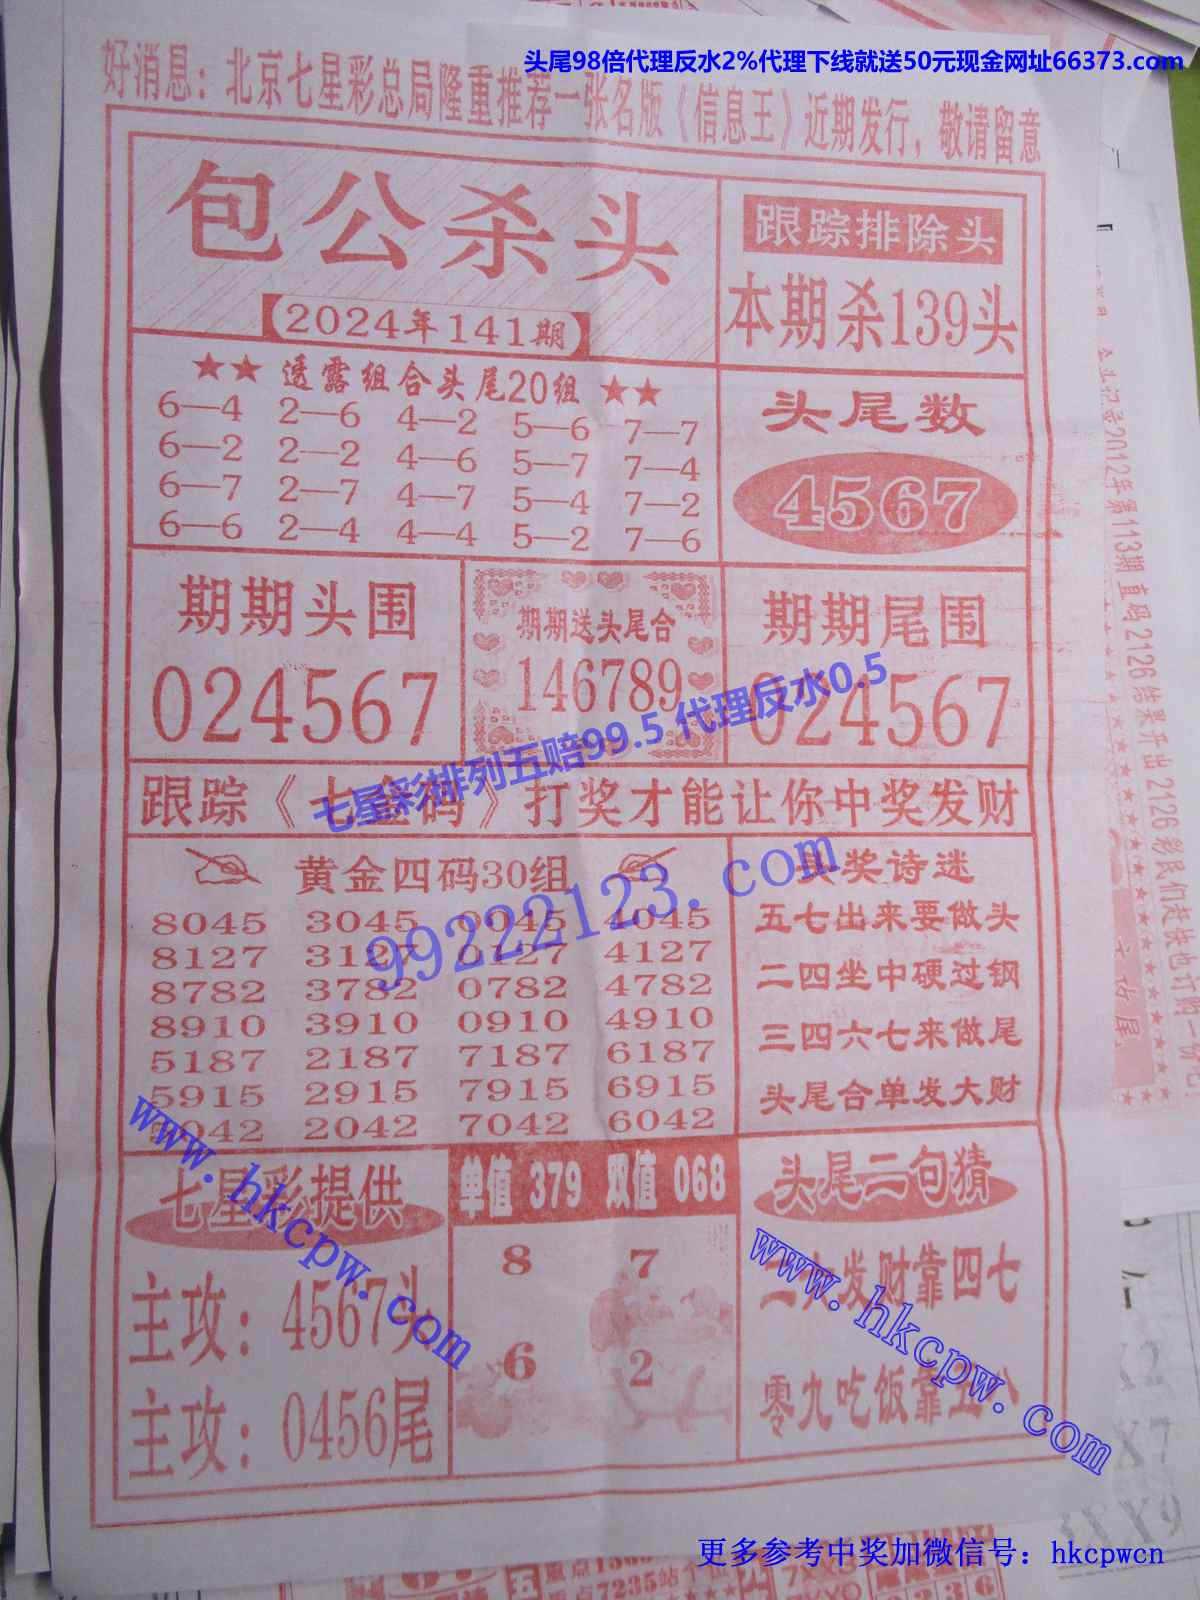 头尾98倍代理反水2%代理下线就送50元现金网址66373.com
好消息：北京七星彩总局隆重推荐一张名版《信息王》近期发行，敬请留意
包公杀头
【2024年141期】
跟踪排除头
本期杀139头
★★ 透露组合头尾20组 ★★
6—4 2—6 4—2 5—6 7—7
6—2 2—2 4—6 5—7 7—4
6—7 2—7 4—7 5—4 7—2
6—6 2—4 4—4 5—2 7—6
头尾数
4567
期期头围
024567
期期送头尾合
146789
期期尾围
024567
七星彩排列五赔99.5 代理反水0.5
跟踪《七 码》打奖才能让你中奖发财
黄金四码30组
8045 3045 0045 4045
8127 3127 0127 4127
8782 3782 0782 4782
8910 3910 0910 4910
5187 2187 7187 6187
5915 2915 7915 6915
042 2042 7042 6042
99222123.com
头奖诗迷
五七出来要做头
二四坐中硬过钢
三四六七来做尾
头尾合单发大财
七星彩提供
主攻：4567头
主攻：0456尾
www.hkcpw.com
单值 379 双值 068
8 7
6 2
头尾二句猜
发财靠四七
零九吃饭靠五八
www.hkcpw.com
2012年第113期直码2126结果开出2126彩民们赶快也订购一份吧
X2
X7
XX9
更多参考中奖加微信号：hkcpwcn